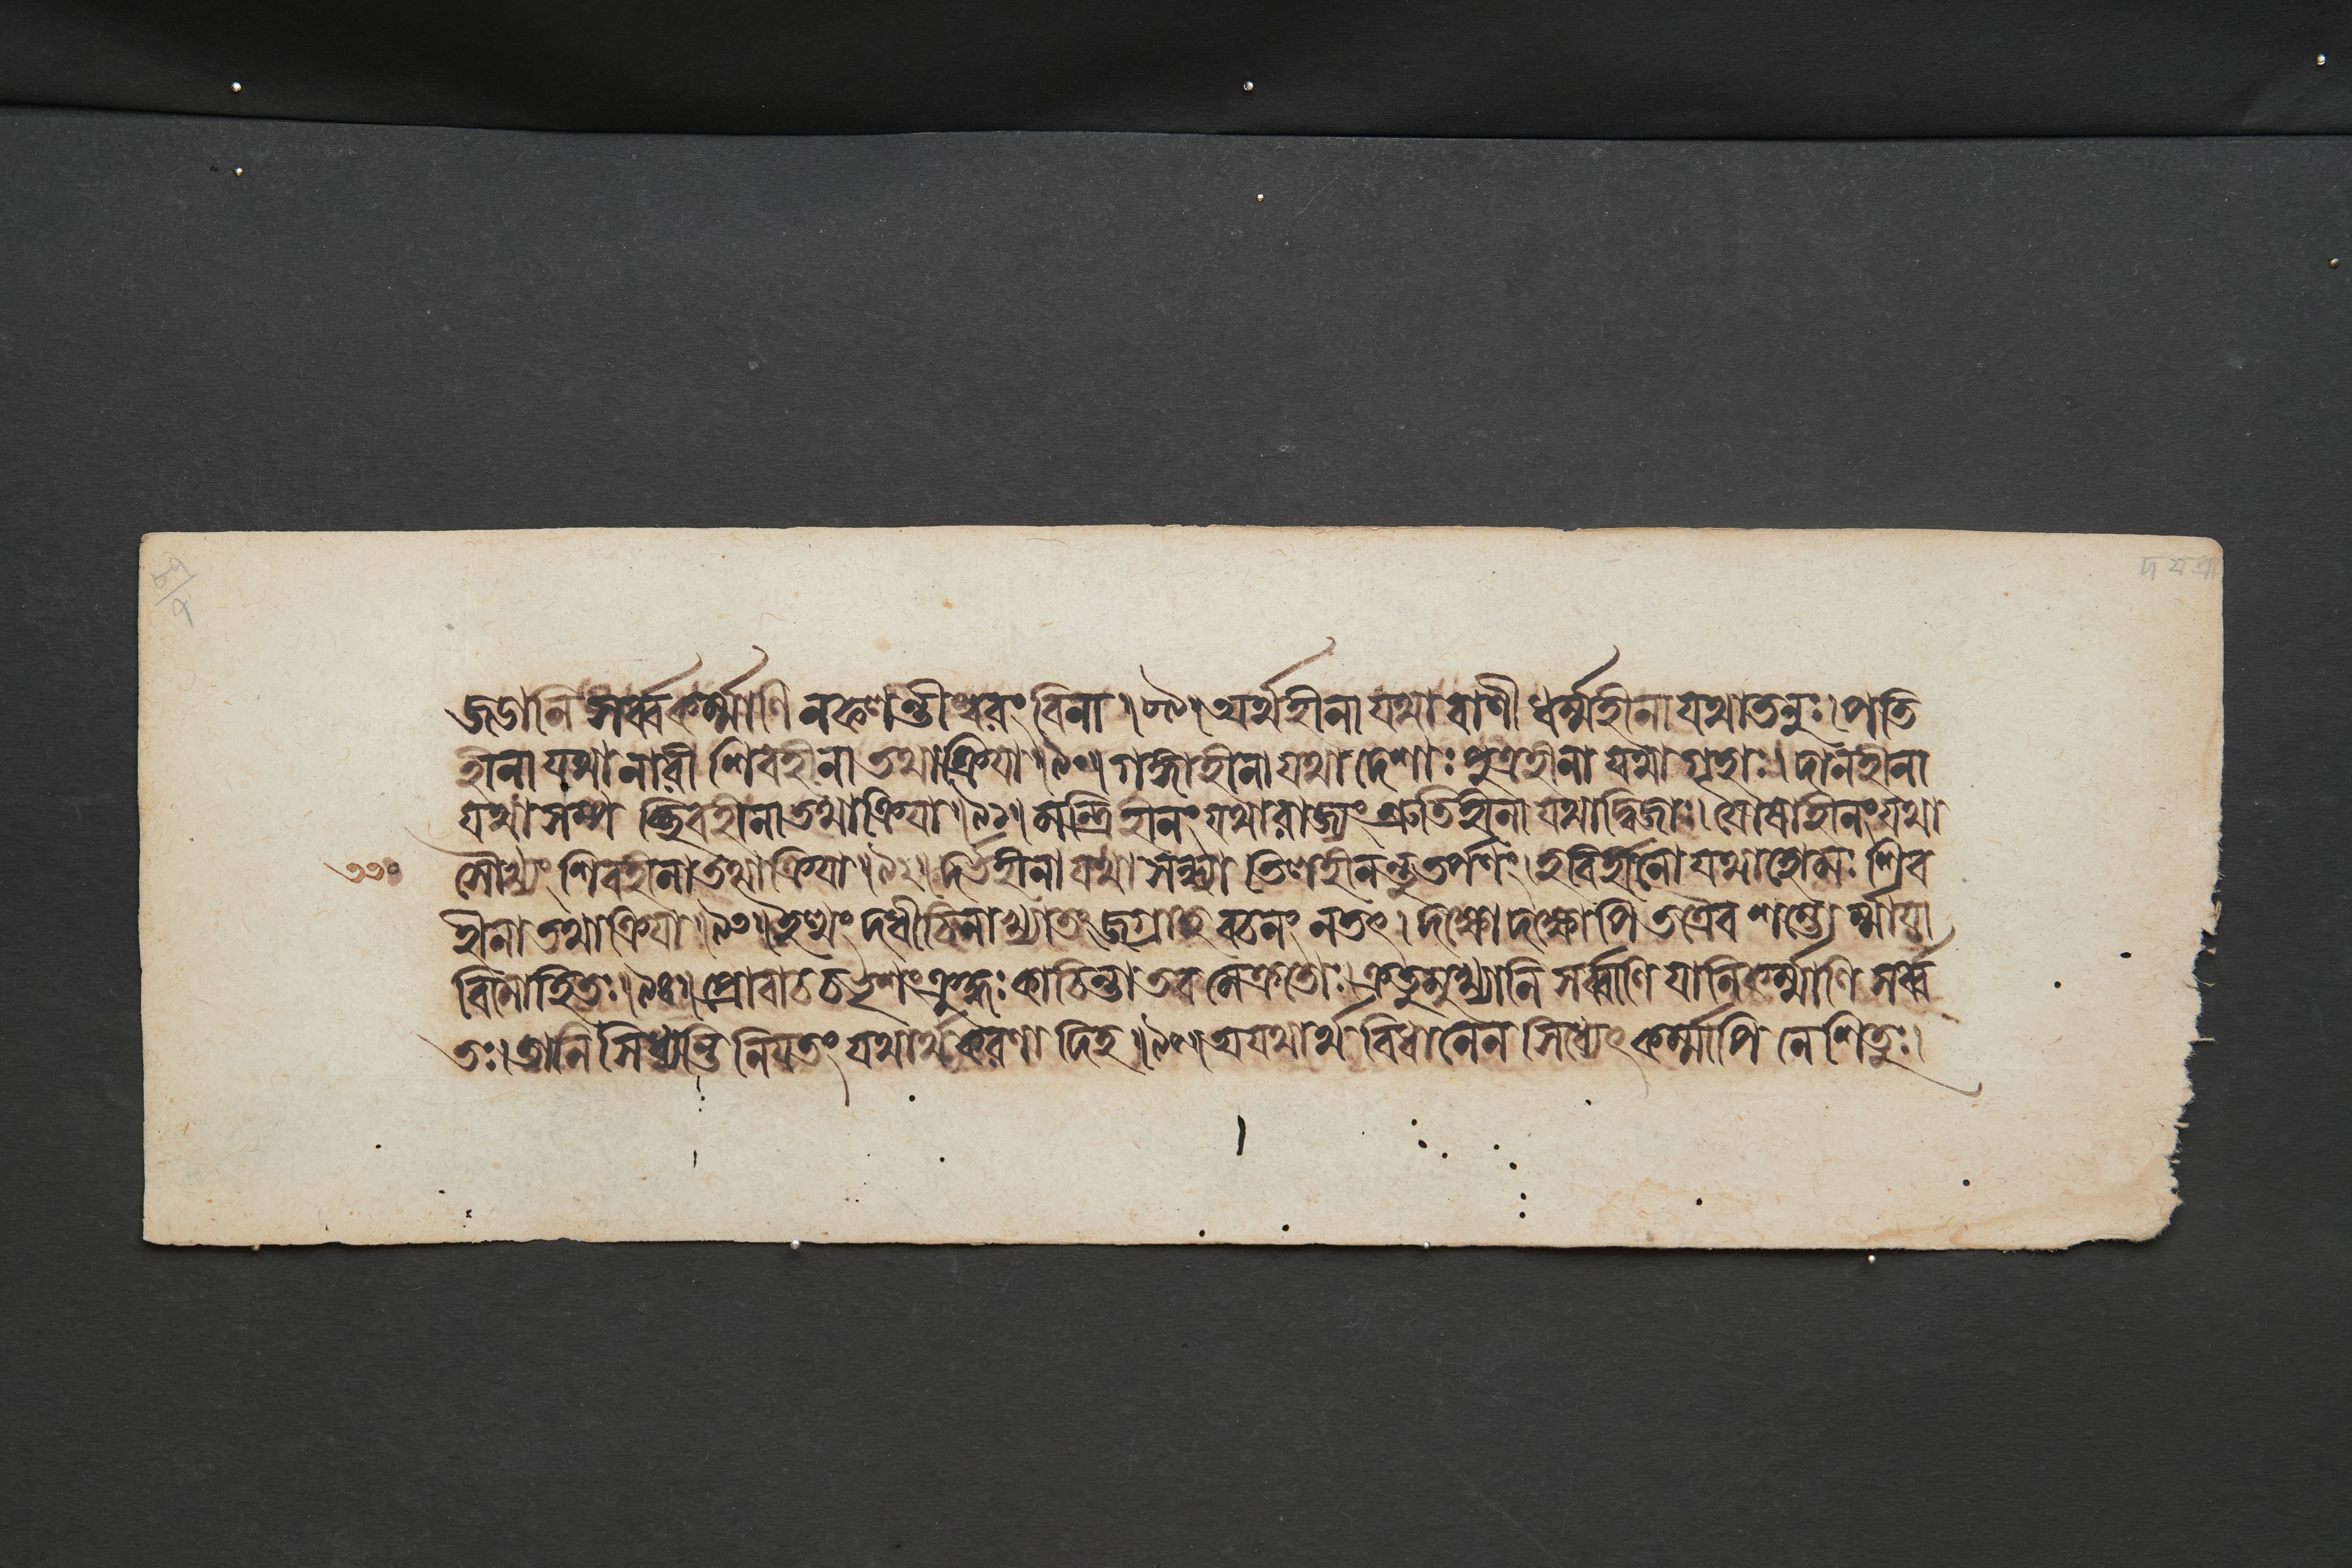 জডানি সর্ব্বকর্ম্মাণি নফলন্তীশ্বরং বিনা।৯০। অর্থহীনা যথা বাণী ধর্ম্মহীনা যথাতনুঃ। পতি
হীনা যথা নারী শিবহীনা তথাক্রিয়া।৯১। গঙ্গাহীনা যথা দেশাঃ পুত্রহীনা যথা গৃহাঃ। দানহীনা
যথা সম্প চ্ছিবহীনা তথা ক্রিয়া।৯২। মন্ত্রিহীনং যথা রাজ্যং শ্রুতিহীনা যথাদ্বিজাঃ। যোষাহীনং যথা
সৌখ্যং শিবহীনা তথা ক্রিয়া।৯২। দর্ভহীনা যথা সন্ধ্যা তিলহীনন্তু তর্পণং। হবির্হীনো যথা হোমঃ শিব
হীনা তথা ক্রিয়া।৯৩। ইত্থং দধীচিনাখ্যাতং জগ্রাহ বচনং নতৎ। দক্ষো দক্ষোপি তত্রৈব শম্ভোর্ম্মায়া
বিমোহিতঃ।৯৪। প্রোবাচ চ ভৃশং ক্রুদ্ধঃ কাচিন্তা তব মেক্রতোঃ। ক্রতুমুখ্যানি সর্ব্বাণি যানি কর্ম্মাণি সর্ব্ব
তঃ। তানি সিধ্যন্তি নিয়তং যথার্থকরণা দিহ।৯৫। অযথার্থ বিধানেন সিধ্যেৎ কর্ম্মাপি নেশিতুঃ।
৩৩০